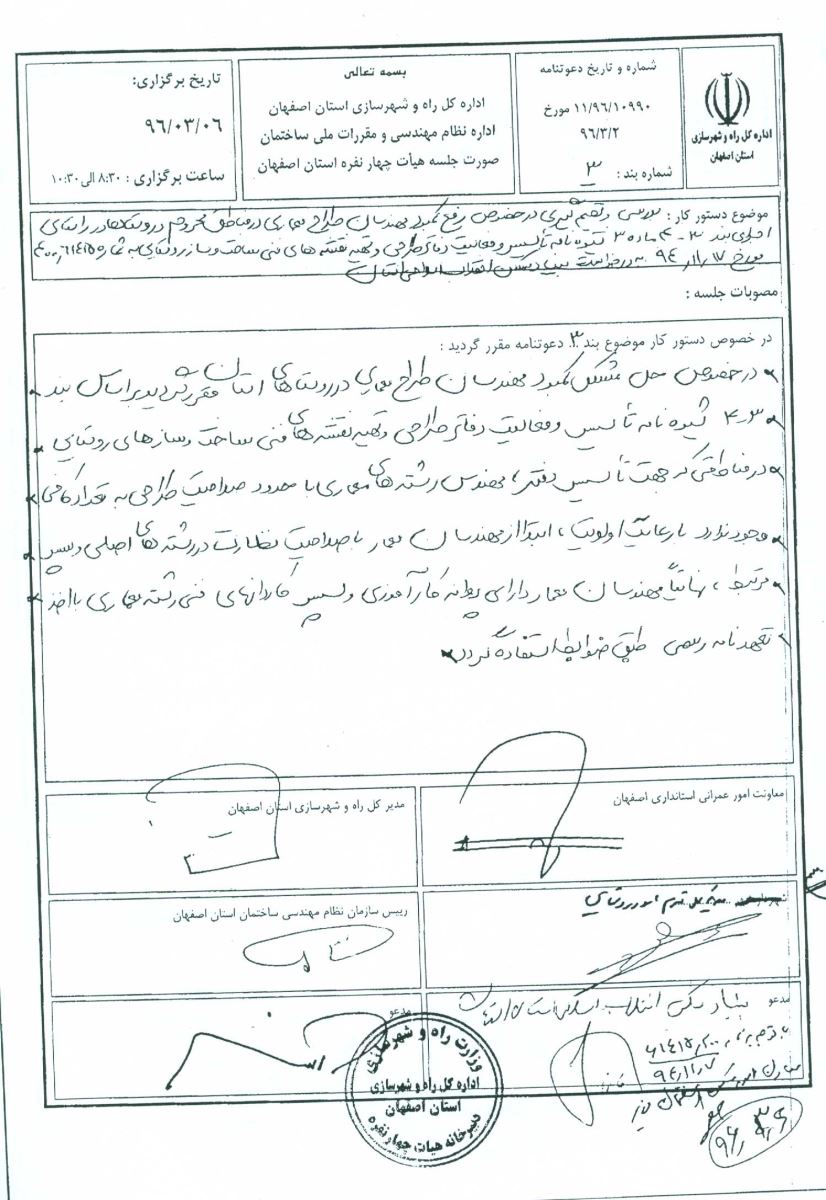 اداره کل راه و شهرسازی
استان اصفهان
شماره و تاریخ دعوتنامه
۱۱/۹۶/۱۰۹۹۰ مورخ
۹۶/۳/۲
شماره بند : ۳
بسمه تعالی
اداره کل راه و شهرسازی استان اصفهان
اداره نظام مهندسی و مقررات ملی ساختمان
صورت جلسه هیأت چهار نفره استان اصفهان
تاریخ برگزاری:
۹۶/۰۳/۰۶
ساعت برگزاری : ۸:۳۰ الی ۱۰:۳۰
موضوع دستور کار : بررسی و تصمیم گیری در خصوص رفع کمبود مهندسان طراح معماری در مناطق محروم در روستاها در راستای
اجرای بند ۳-۴ ماده ۳ شیوه نامه تأسیس و فعالیت دفاتر طراحی و تهیه نقشه های فنی ساخت و ساز روستایی به شماره
مورخ ۹۴/۱۱/۱۷ به درخواست بنیاد مسکن انقلاب اسلامی استان
مصوبات جلسه :
در خصوص دستور کار موضوع بند ۳ دعوتنامه مقرر گردید :
در خصوص حل مشکل کمبود مهندسان طراح معماری در روستاهای استان مقرر گردید بر اساس بند
۳-۴ شیوه نامه تأسیس و فعالیت دفاتر طراحی و تهیه نقشه های فنی ساخت و سازهای روستایی
در مناطقی که جهت تأسیس دفتر، مهندس رشته های معماری با حدود صلاحیت طراحی به تعداد کافی
وجود ندارد با رعایت اولویت، ابتدا از مهندسان معمار با صلاحیت نظارت در رشته های اصلی و سپس
مرتبط، نهایتاً مهندسان معمار دارای پروانه کارآموزی و سپس کاردانهای فنی رشته معماری با اخذ
تعهدنامه رسمی طبق ضوابط استفاده گردد.
معاونت امور عمرانی استانداری اصفهان
مدیر کل راه و شهرسازی استان اصفهان
امور روستایی
رییس سازمان نظام مهندسی ساختمان استان اصفهان
مدعو
بنیاد مسکن انقلاب اسلامی استان اصفهان
مدعو
وزارت راه و شهرسازی
اداره کل راه و شهرسازی
استان اصفهان
دبیرخانه هیات چهار نفره